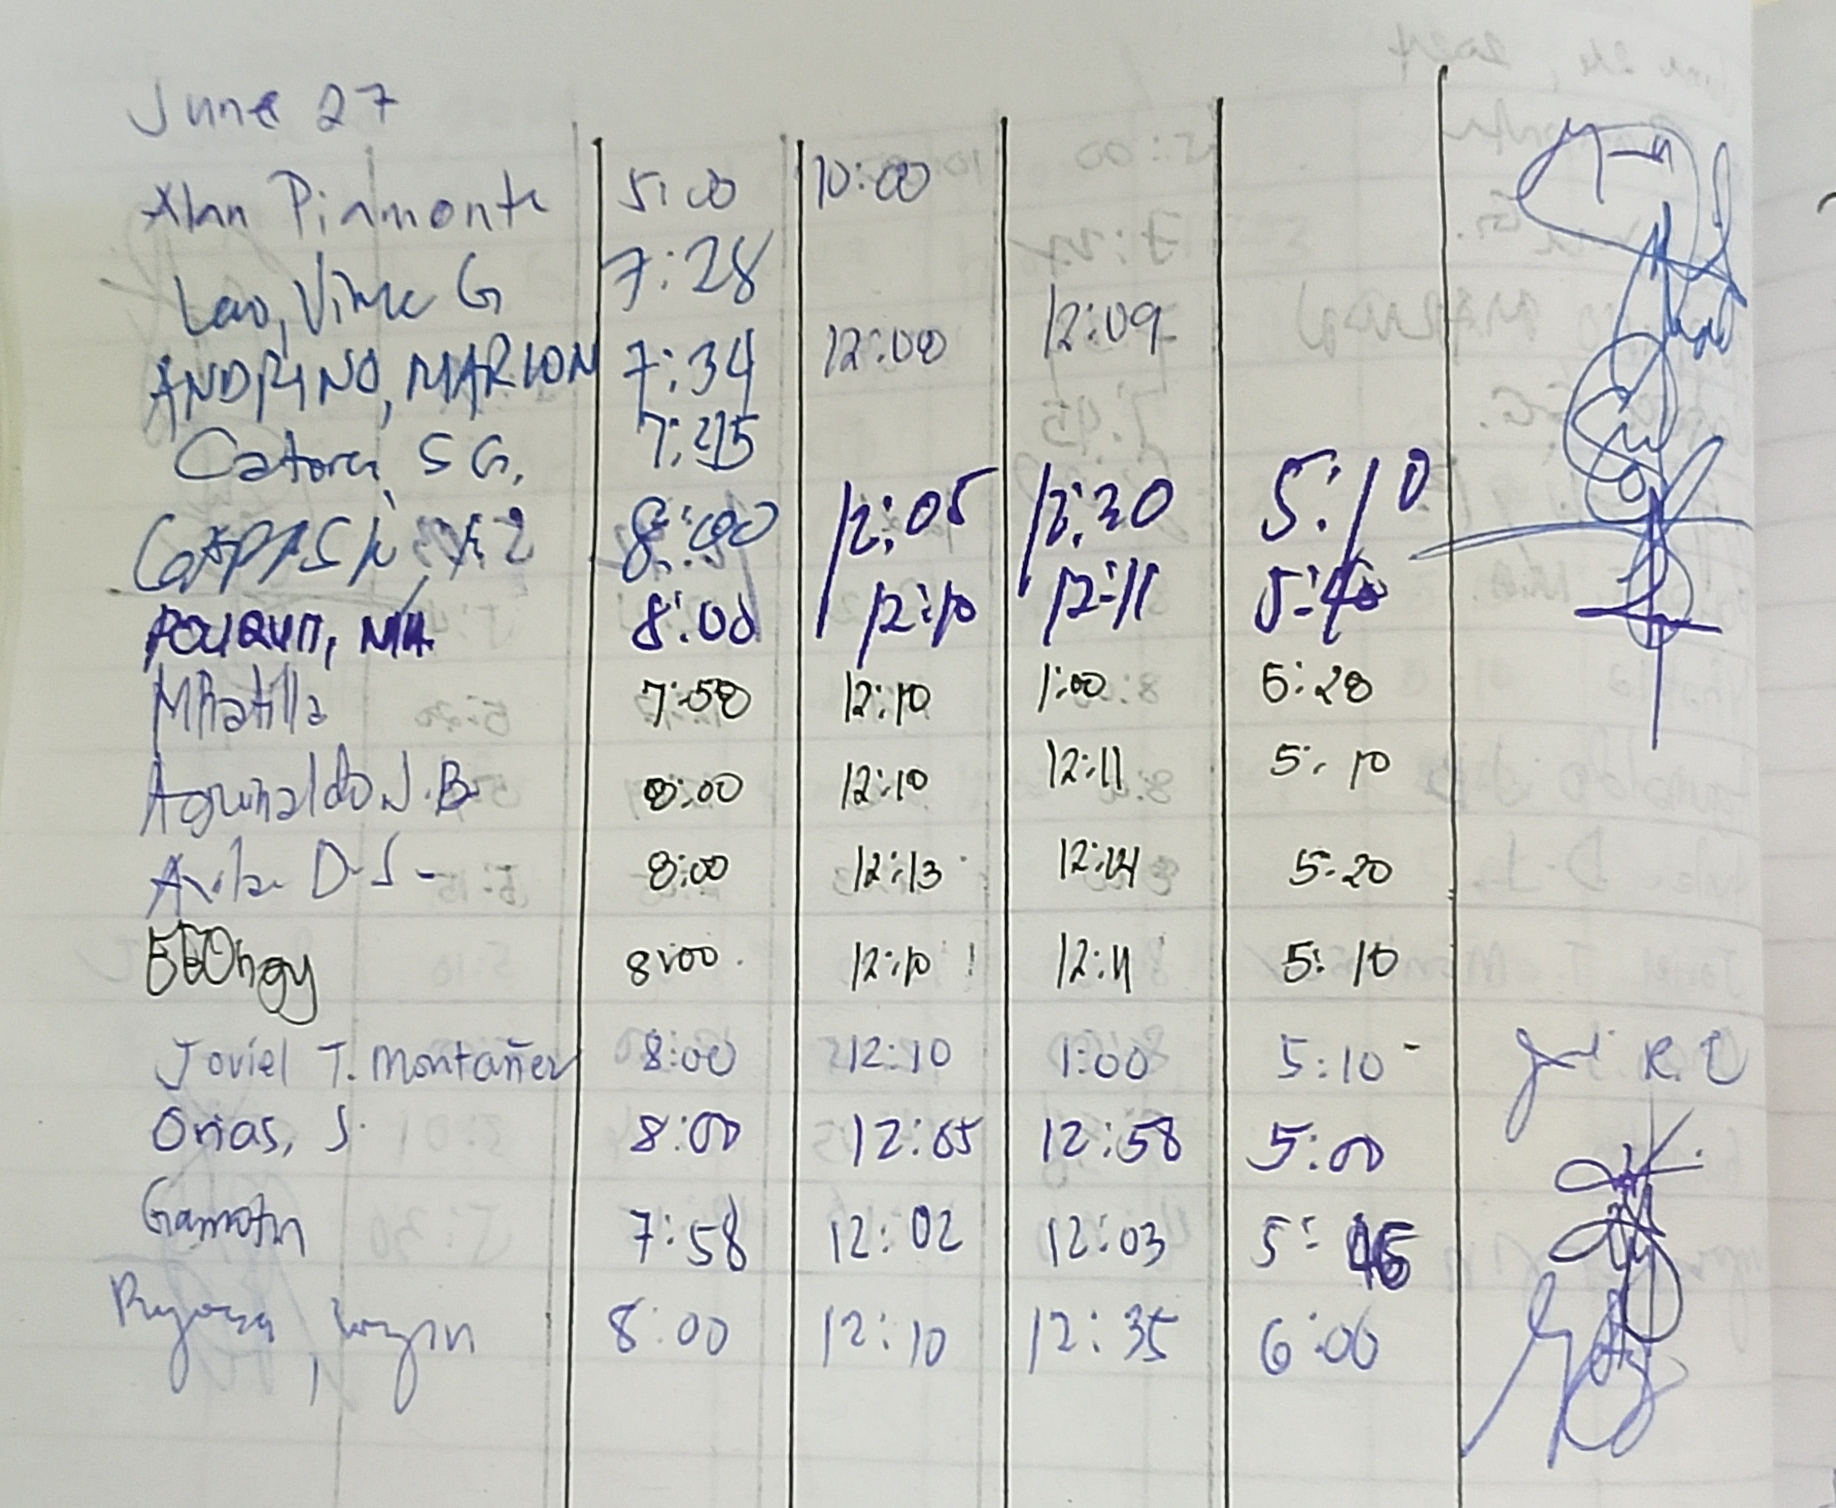 June 27
Alan Piamonte 5:00 10:00
Lao, Vince G 7:28
ANDRINO, MARION 7:34 12:00 12:09
Catora, S G. 7:45
8:00 12:05 12:30 5:10
8:00 12:10 12:11 5:40
MRatilla 7:58 12:10 1:00 5:20
Aguinaldo J.B. 8:00 12:10 12:11 5:10
Avila D.S- 8:00 12:13 12:14 5:20
8:00 12:10 12:11 5:10
Joviel T. Montañez 8:00 12:10 1:00 5:10
Orias, S. 8:00 12:05 12:58 5:00
Gamotin 7:58 12:02 12:03 5:
8:00 12:10 12:35 6:00